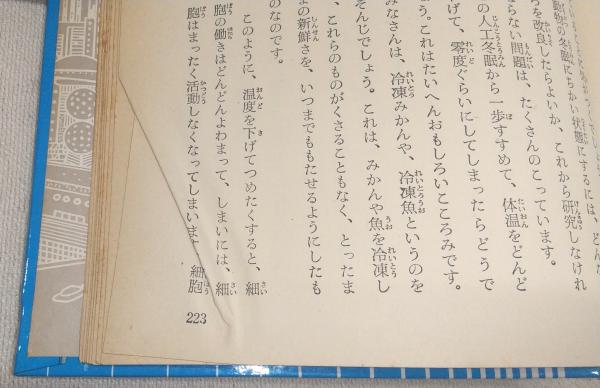 動物の冬眠にちかい状態にするには、どんな
ろを改良したらよいか、これから研究しなけれ
ならない問題は、たくさんのこっています。
の人工冬眠から一歩すすめて、体温をどんど
げて、零度ぐらいにしてしまったらどうで
ょう。これはたいへんおもしろいこころみです。
みなさんは、冷凍みかんや、冷凍魚というのを
ぞんじでしょう。これは、みかんや魚を冷凍し
、これらのものがくさることもなく、とったま
の新鮮さを、いつまでももたせるようにしたも
のなのです。
このように、温度を下げてつめたくすると、細
胞の働きはどんどんよわまって、しまいには、細
胞はまったく活動しなくなってしまいます。細胞
223